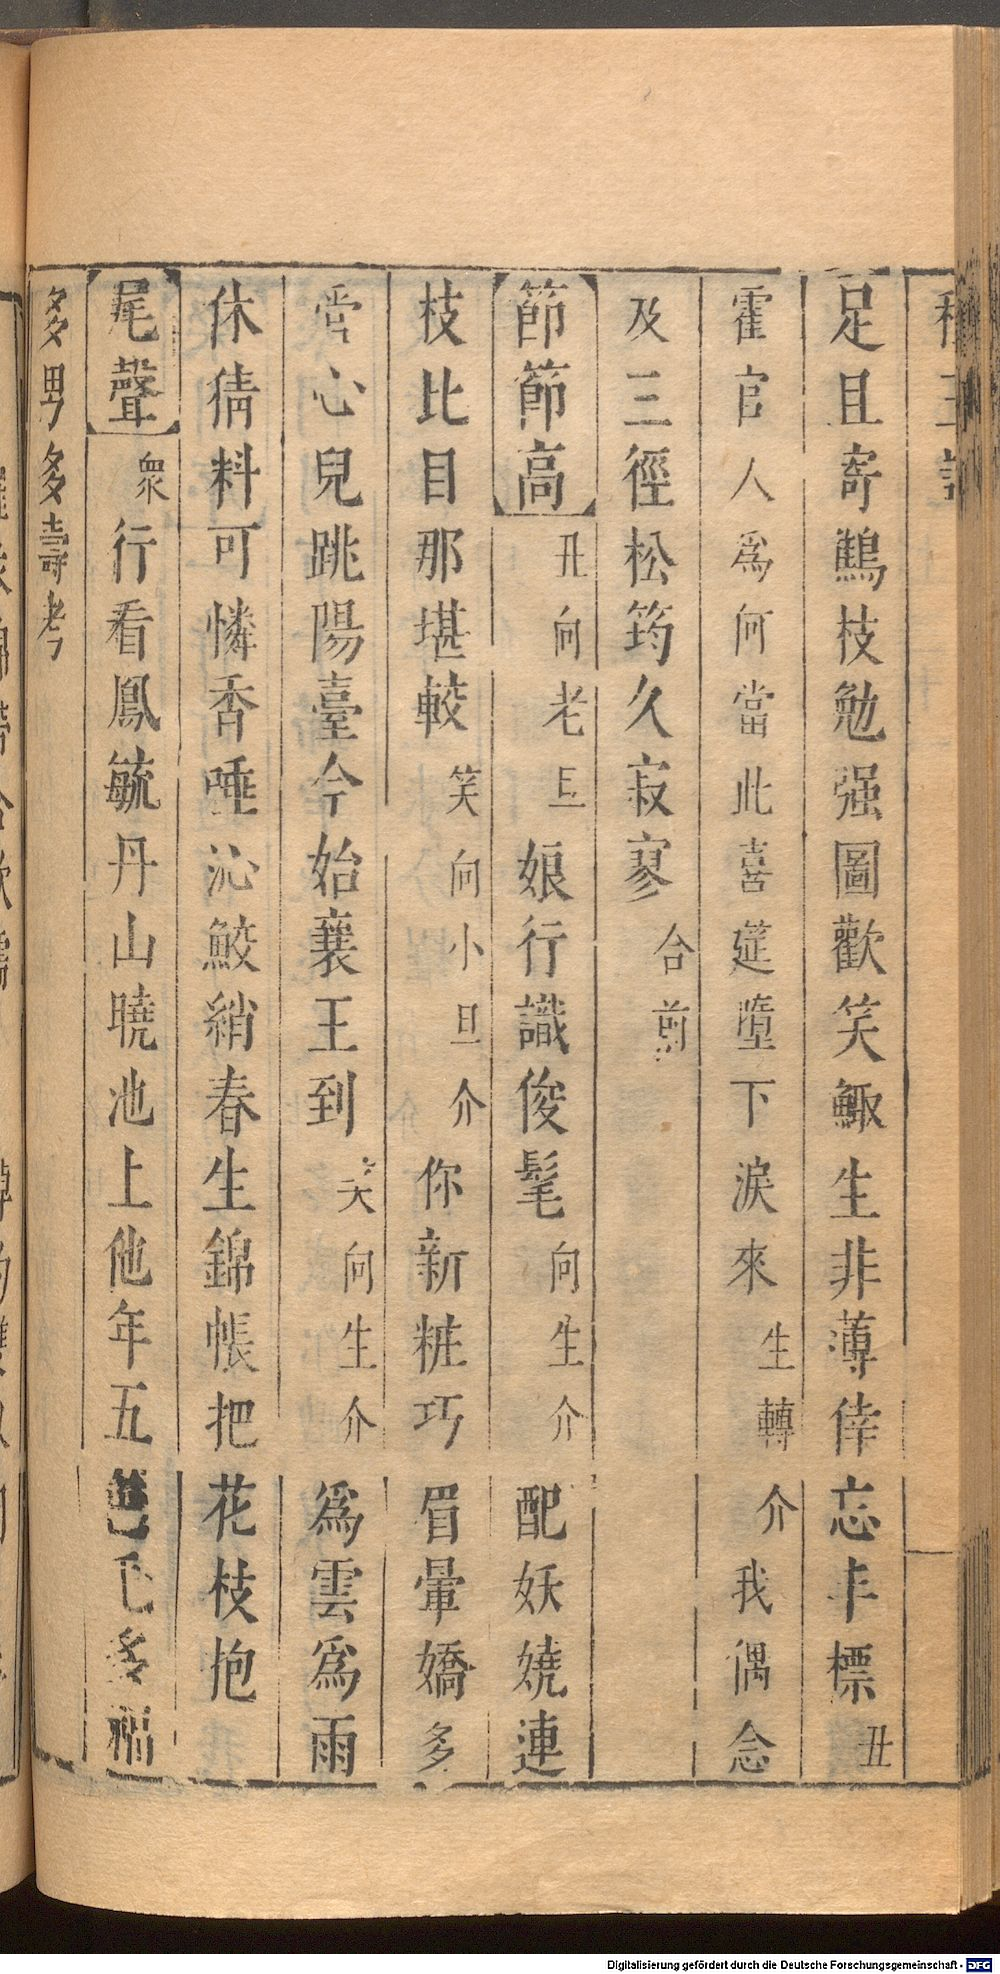 足且寄鷦枝勉强圖歡笑鯫生非薄倖忘丰標丑
霍官人爲何當此喜筵墮下淚來生轉介我偶念
及三徑松筠久寂寥合前
節節高丑向老旦娘行識俊髦向生介配妖嬈連
枝比目那堪較笑向小旦介你新粧巧眉暈嬌多
嘗心兒跳陽臺今始襄王到笑向生介爲雲爲雨
休倩料可憐香唾沁鮫綃春生錦帳把花枝抱
尾聲衆行看鳳毓丹山曉池上他年五色毛多福
多男多壽考
Digitalisierung gefördert durch die Deutsche Forschungsgemeinschaft - DFG